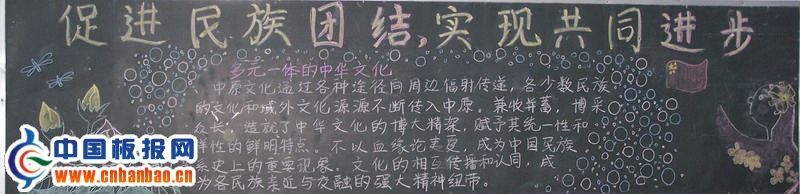 促进民族团结,实现共同进步
多元一体的中华文化
中原文化通过各种途径向周边辐射传递，各少数民族
的文化和域外文化源源不断传入中原。兼收并蓄，博采
众长，造就了中华文化的博大精深，赋予其统一性和
样性的鲜明特点，不以血缘论英夏，成为中国民族
系史上的重要现象。文化的相互传播和认同，成
为各民族亲近与交融的强大精神纽带。
中国板报网
www.cnbanbao.cn